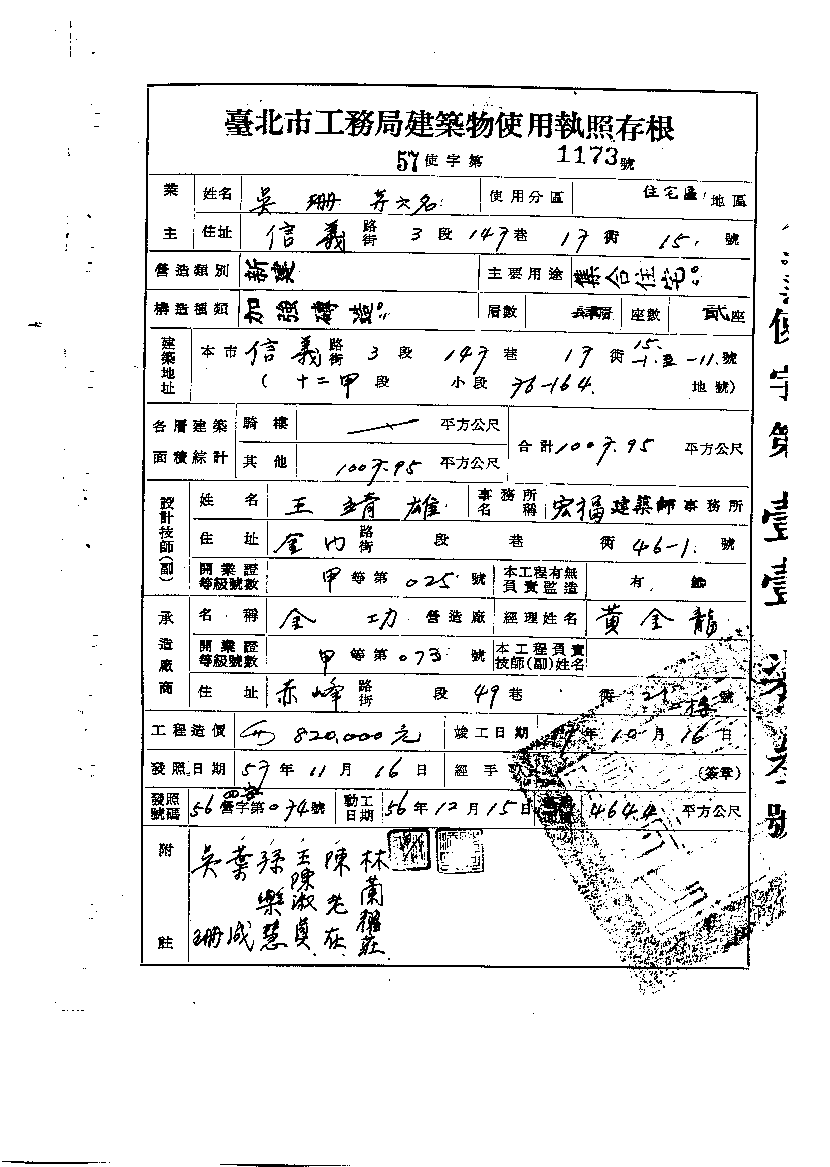 臺北市工務局建築物使用執照存根
57使字第 1173號
業主 姓名 吳珊等六名 使用分區 住宅區 地區
住址 信義路街 3段 147巷 17衖 15. 號
營造類別 新建 主要用途 集合住宅
構造種類 加強磚造 層數 肆層 座數 貳座
建築地址 本市 信義路街 3段 147巷 17衖 15. -1.至-11.號
(十二甲段 小段 76-164. 地號)
各層建築面積綜計 騎樓 平方公尺 合計1007.95 平方公尺
其他 1007.95 平方公尺
設計技師(副) 姓名 王 雄 事務所名稱 宏福建築師事務所
住址 金門路街 段 巷 衖 46-1. 號
開業證等級號數 甲等第 025 號 本工程有無負責監造 有
承造廠商 名稱 金功 營造廠 經理姓名 黃金龍
開業證等級號數 甲等第 073 號 本工程負責技師(副)姓名
住址 赤峰路街 段 49巷 衖 號
工程造價 820,000元 竣工日期 57年10月16日
發照日期 57年11月16日 經手 (簽章)
發照號碼 56營字第074號 動工日期 56年12月15日 464.4 平方公尺
附註
林蘭
陳
王陳淑貞
孫樂慧
葉成
吳珊
使字第壹壹柒叁號